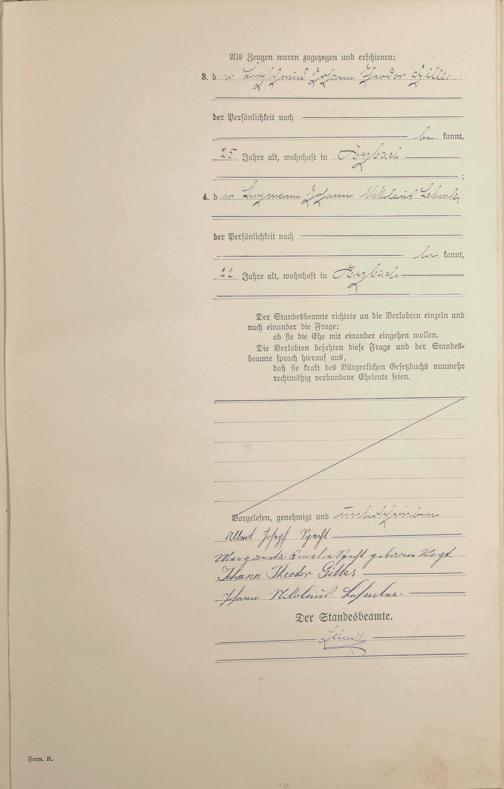 Als Zeugen waren zugezogen und erschienen:
3. der Johann Theodor Gilles
der Persönlichkeit nach
be kannt,
25 Jahre alt, wohnhaft in
;
4. der Bergmann Johann Nikolaus
der Persönlichkeit nach
be kannt,
22 Jahre alt, wohnhaft in
Der Standesbeamte richtete an die Verlobten einzeln und
nach einander die Frage:
ob sie die Ehe mit einander eingehen wollen.
Die Verlobten bejahten diese Frage und der Standes-
beamte sprach hierauf aus,
daß sie kraft des Bürgerlichen Gesetzbuchs nunmehr
rechtmäßig verbundene Eheleute seien.
Vorgelesen, genehmigt und unterschrieben
Albert Josef Specht
Margareta Specht geborene Voigt
Johann Theodor Gilles
Johann Nikolaus
Der Standesbeamte.
Form. B.